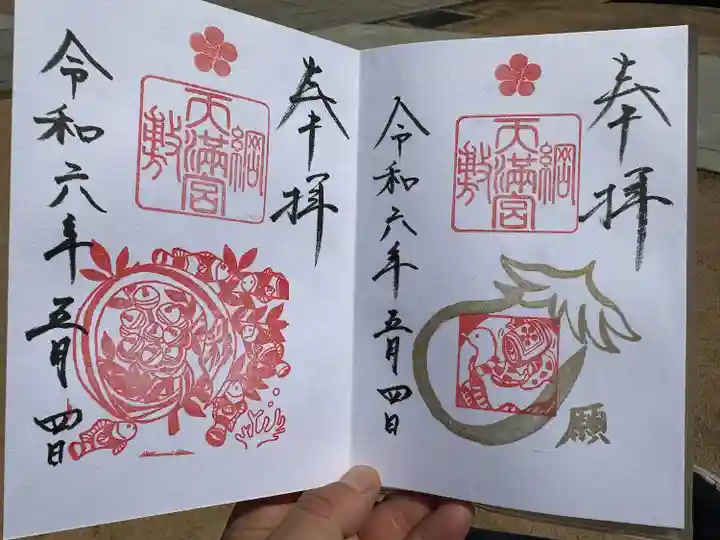 奉拝
綱敷天満宮
令和六年五月四日
奉拝
綱敷天満宮
願
令和六年五月四日